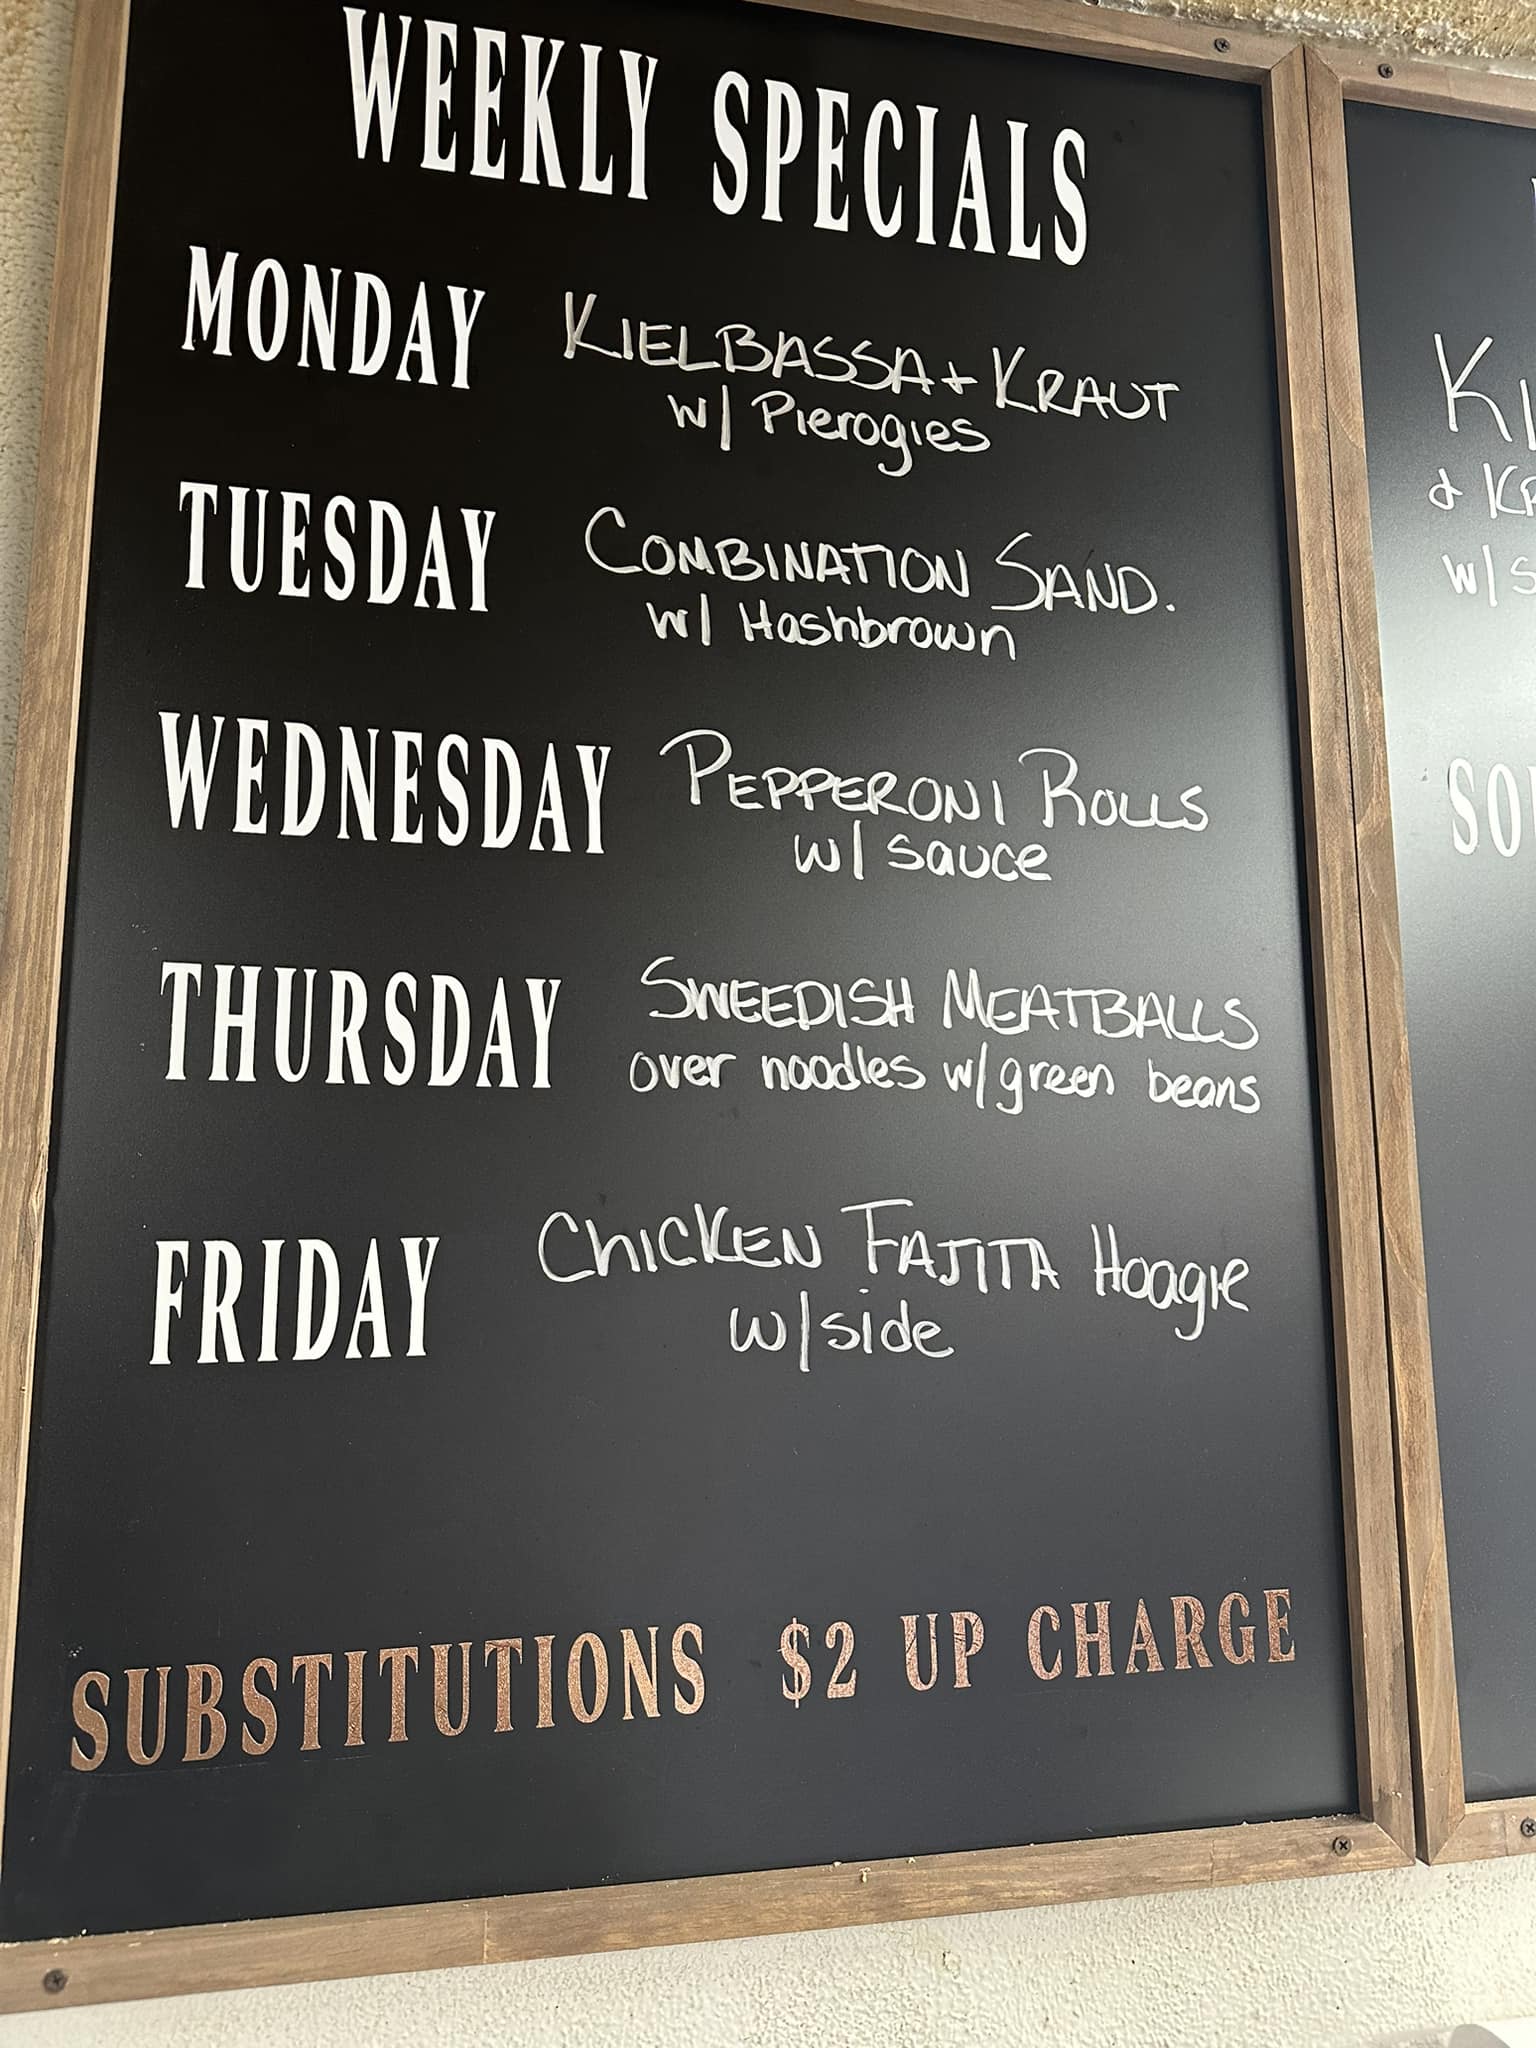 WEEKLY SPECIALS
MONDAY KIELBASSA + KRAUT
w/ Pierogies
TUESDAY COMBINATION SAND.
w/ Hashbrown
WEDNESDAY PEPPERONI ROLLS
w/ sauce
THURSDAY SWEEDISH MEATBALLS
over noodles w/ green beans
FRIDAY CHICKEN FAJITA HOAGIE
w/ side
SUBSTITUTIONS $2 UP CHARGE